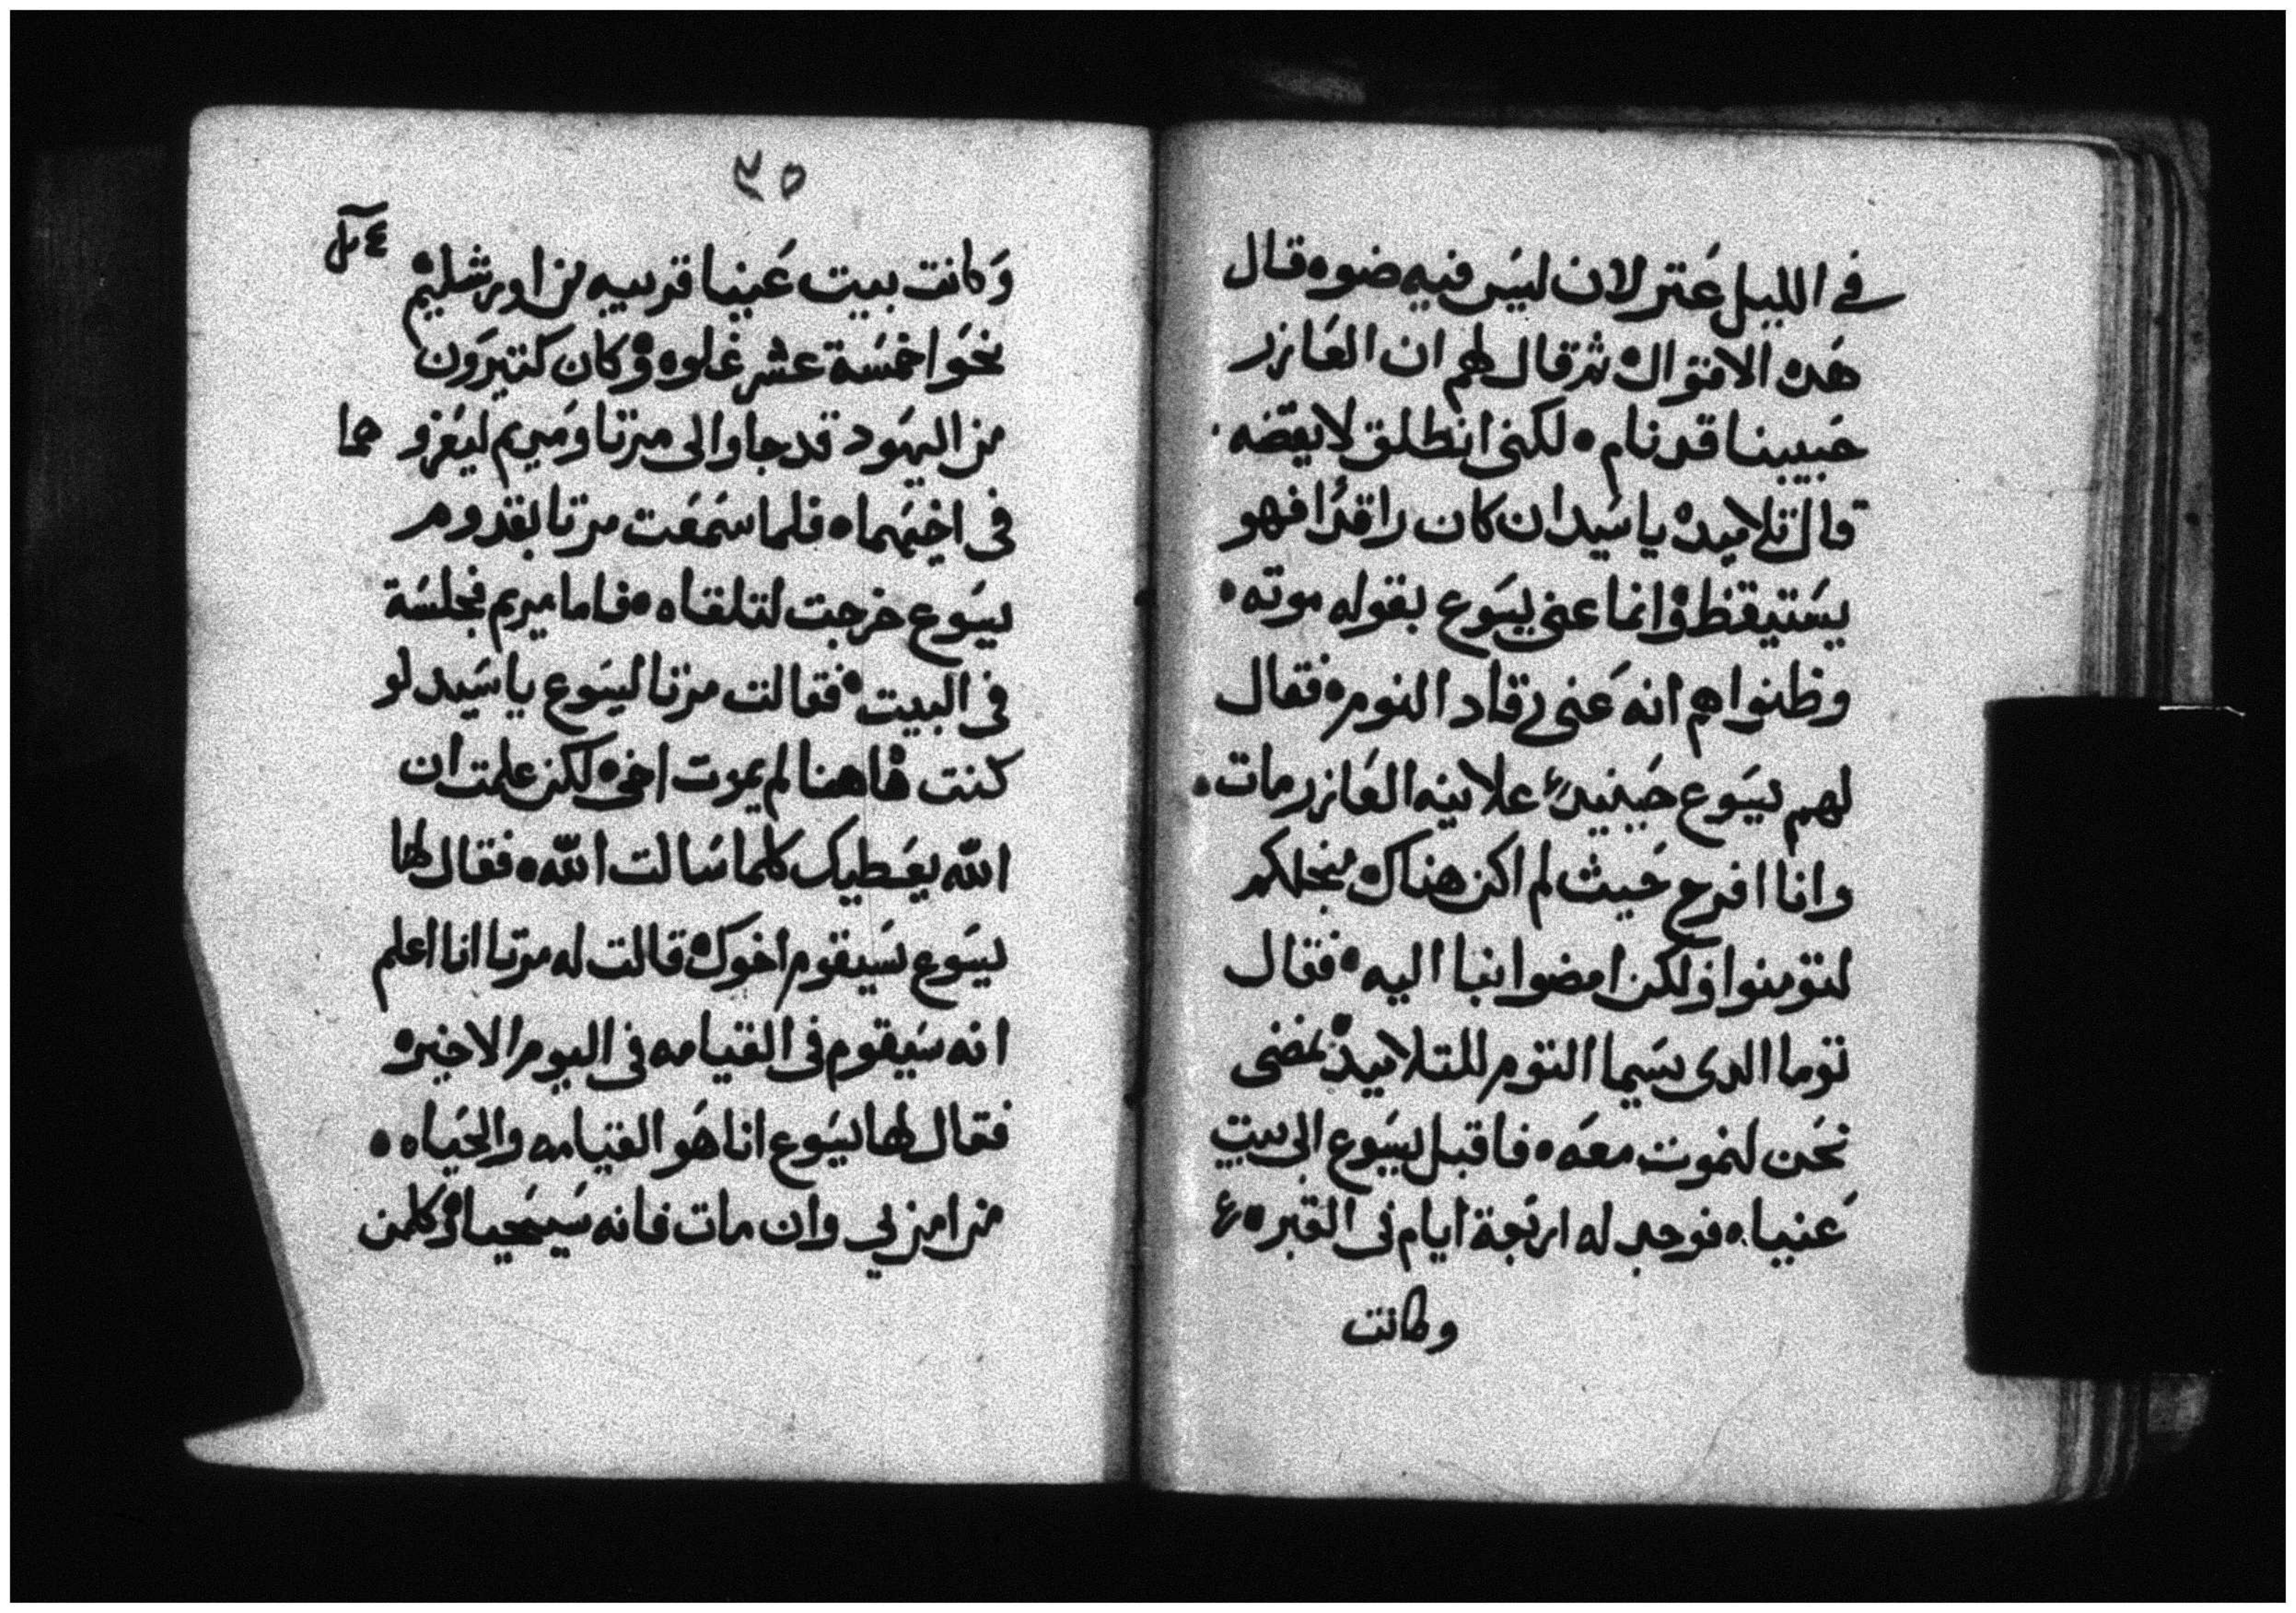 في الليل عتر لان ليس فيه ضوه قال
هده الاقوال ثم قال لهم ان العازر
حبيبنا قد نام ه لكني انطلق لايقضه
قال تلاميده يا سيد ان كان راقدا فهو
يستيقظ ه وانما عني يسوع بقوله موته ه
وظنوا هم انه عني رقاد النوم ه فقال
لهم يسوع حينيد علانيه العازر مات ه
وانا افرح حيث لم اكن هناك من اجلكم
لتومنوا ولكن امضوا بنا اليه ه فقال
توما الدي يسما التوم للتلاميد ه نمضي
نحن لنموت معه ه فاقبل يسوع الى بيت
عنيا ه فوجد له اربعة ايام في القبر ه
وكانت
٣٥
وكانت بيت عنيا قريبه من اورشليم
نحوا خمسة عشر غلوه ه وكان كتيرون
من اليهود قد جاوا الى مرتا ومريم ليعزوهما
في اخيهما ه فلما سمعت مرتا بقدوم
يسوع خرجت لتلقاه ه فاما مريم فجلسة
في البيت ه فقالت مرتا ليسوع يا سيد لو
كنت هاهنا لم يموت اخي ه لكن علمت ان
الله يعطيك كلما سالت الله ه فقال لها
يسوع سيقوم اخوك ه قالت له مرتا انا اعلم
انه سيقوم في القيامه في اليوم الاخير ه
فقال لها يسوع انا هو القيامه والحياه ه
من امن بي وان مات فانه سيحيا ه وكلمن